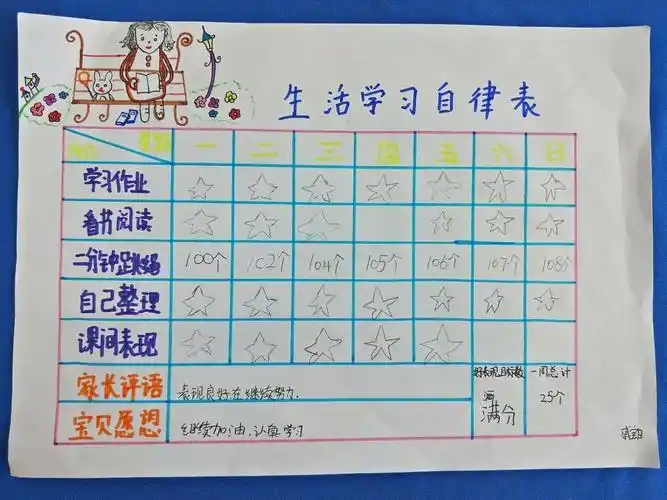 生活学习自律表
星期 一 二 三 四 五 六 日
学习作业
看书阅读
二分钟跳绳 100个 102个 104个 105个 106个 107个 108个
自己整理
课间表现
家长评语 表现良好在继续努力. 好表现目标数 一周总计
满分 25个
宝贝愿望 继续加油.认真学习